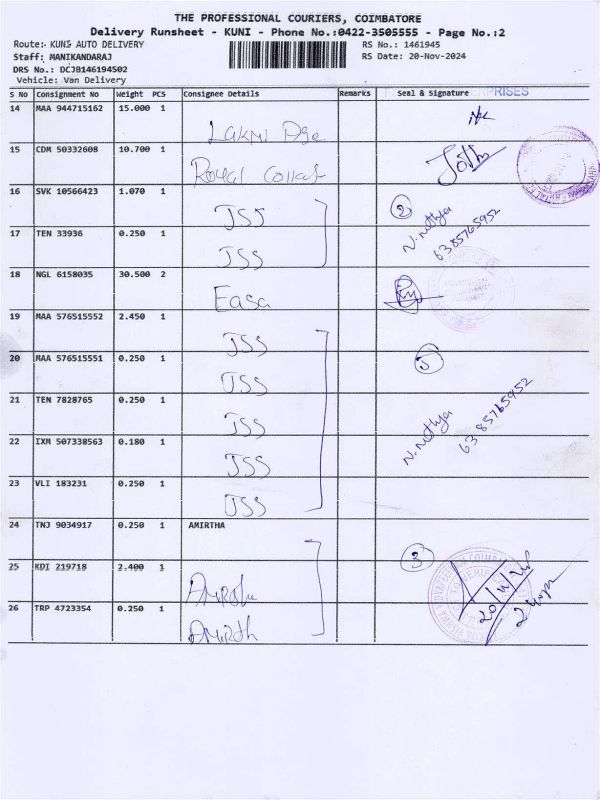 THE PROFESSIONAL COURIERS, COIMBATORE
Delivery Runsheet - KUNI - Phone No.:0422-3505555 - Page No.:2
Route: KUNI AUTO DELIVERY RS No.: 1461945
Staff: MANIKANDARAJ RS Date: 20-Nov-2024
DRS No.: DCJB146194502
Vehicle: Van Delivery
S No Consignment No Weight PCS Consignee Details Remarks Seal & Signature
14 MAA 944715162 15.000 1
15 CDM 50332608 10.700 1
Royal
16 SVK 10566423 1.070 1
JSS 2
N. Nithya
6385765952
17 TEN 33936 0.250 1
JSS
18 NGL 6158035 30.500 2
Easa
19 MAA 576515552 2.450 1
JSS
20 MAA 576515551 0.250 1
JSS 5
21 TEN 7828765 0.250 1
JSS
N. Nithya
6385765952
22 IXM 507338563 0.180 1
JSS
23 VLI 183231 0.250 1
JSS
24 TNJ 9034917 0.250 1 AMIRTHA
3
25 KDI 219718 2.400 1
20/11/24
26 TRP 4723354 0.250 1
Amirth